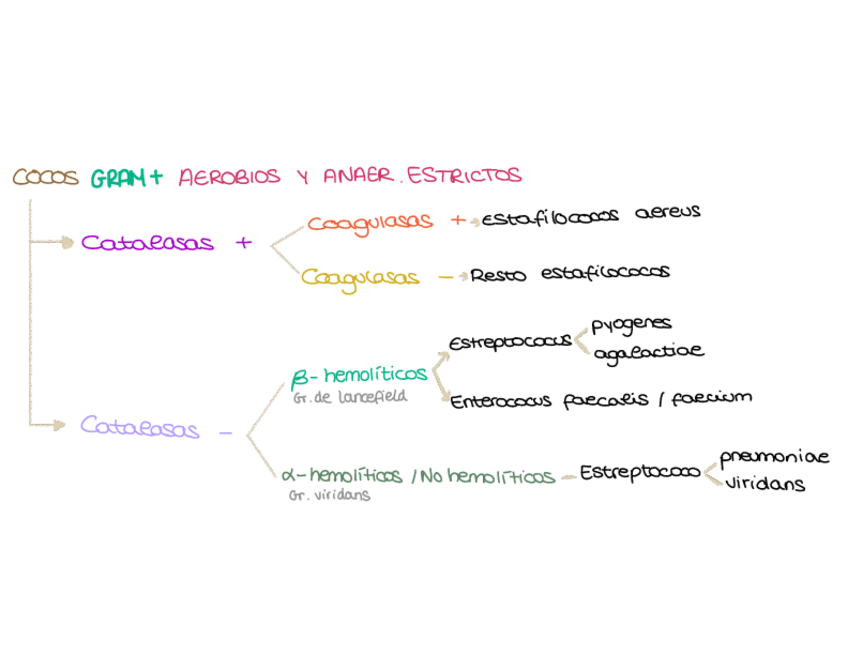 COCOS GRAM+ AEROBIOS Y ANAER. ESTRICTOS
Catalasas +
Coagulasas + estafilococos aereus
Coagulasas - Resto estafilococos
Catalasas -
β-hemolíticos
Gr. de lancefield
Estreptococus
pyogenes
agalactiae
Enterococus faecalis / faecium
α-hemolíticos / No hemolíticos - Estreptococo
Gr. viridans
pneumoniae
viridans